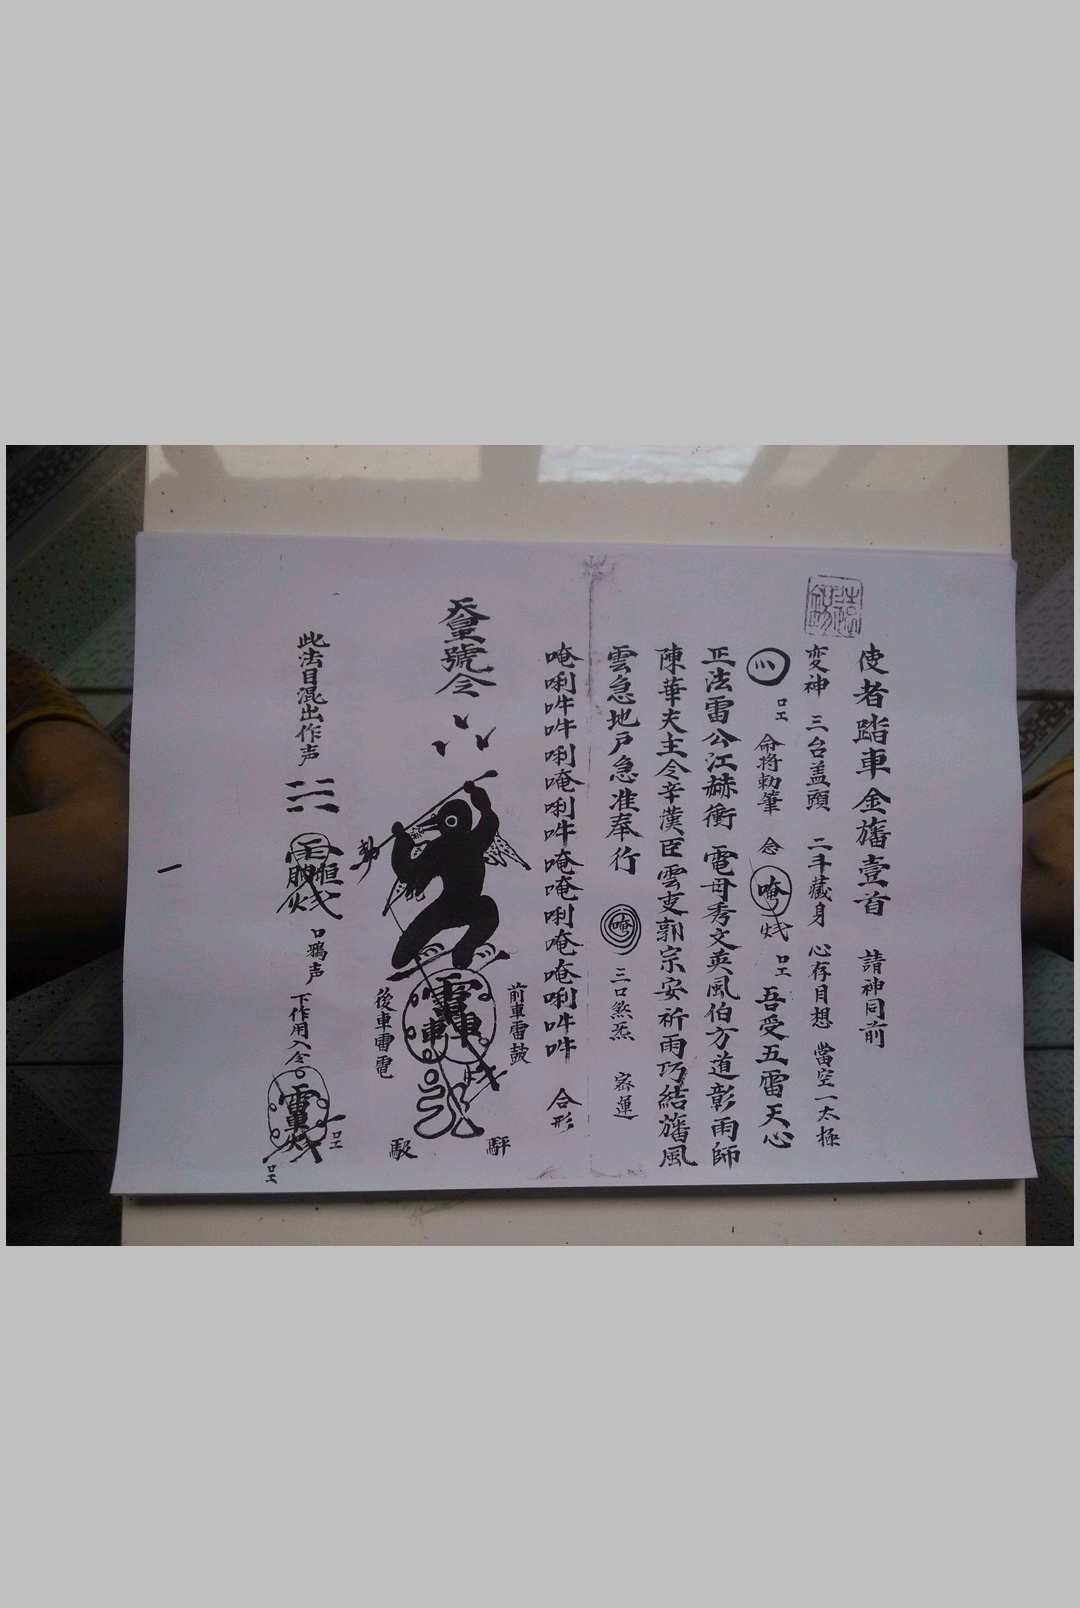 使者踏車金旛壹首 請神同前
変神 三台盖頭 二斗藏身 心存目想 當空一太極
命將勅筆 念 唵 吾受五雷天心
正法雷公江赫衝 電母秀文英風伯方道彰雨師
陳華夫主令辛漢臣雲吏郭宗安祈雨巧結旛風
雲急地户急准奉行 唵 三口煞炁 寄蓮
唵唎吽吽唎唵唎吽唵唵唎唵唵唎吽吽 合形
前車雷鼓
天皇號令
後車雷電
此法目混出作声 口鴉声 下作用入念